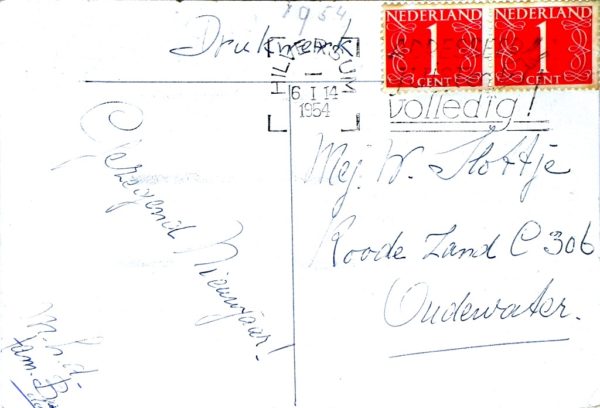 1954
Drukwerk
NEDERLAND NEDERLAND
1 1
CENT CENT
HILVERSUM
6 I 14
1954
volledig!
Gezegend
Nieuwjaar!
Mej. W. Slottje
Roode Zand C 306
Oudewater.
fam.